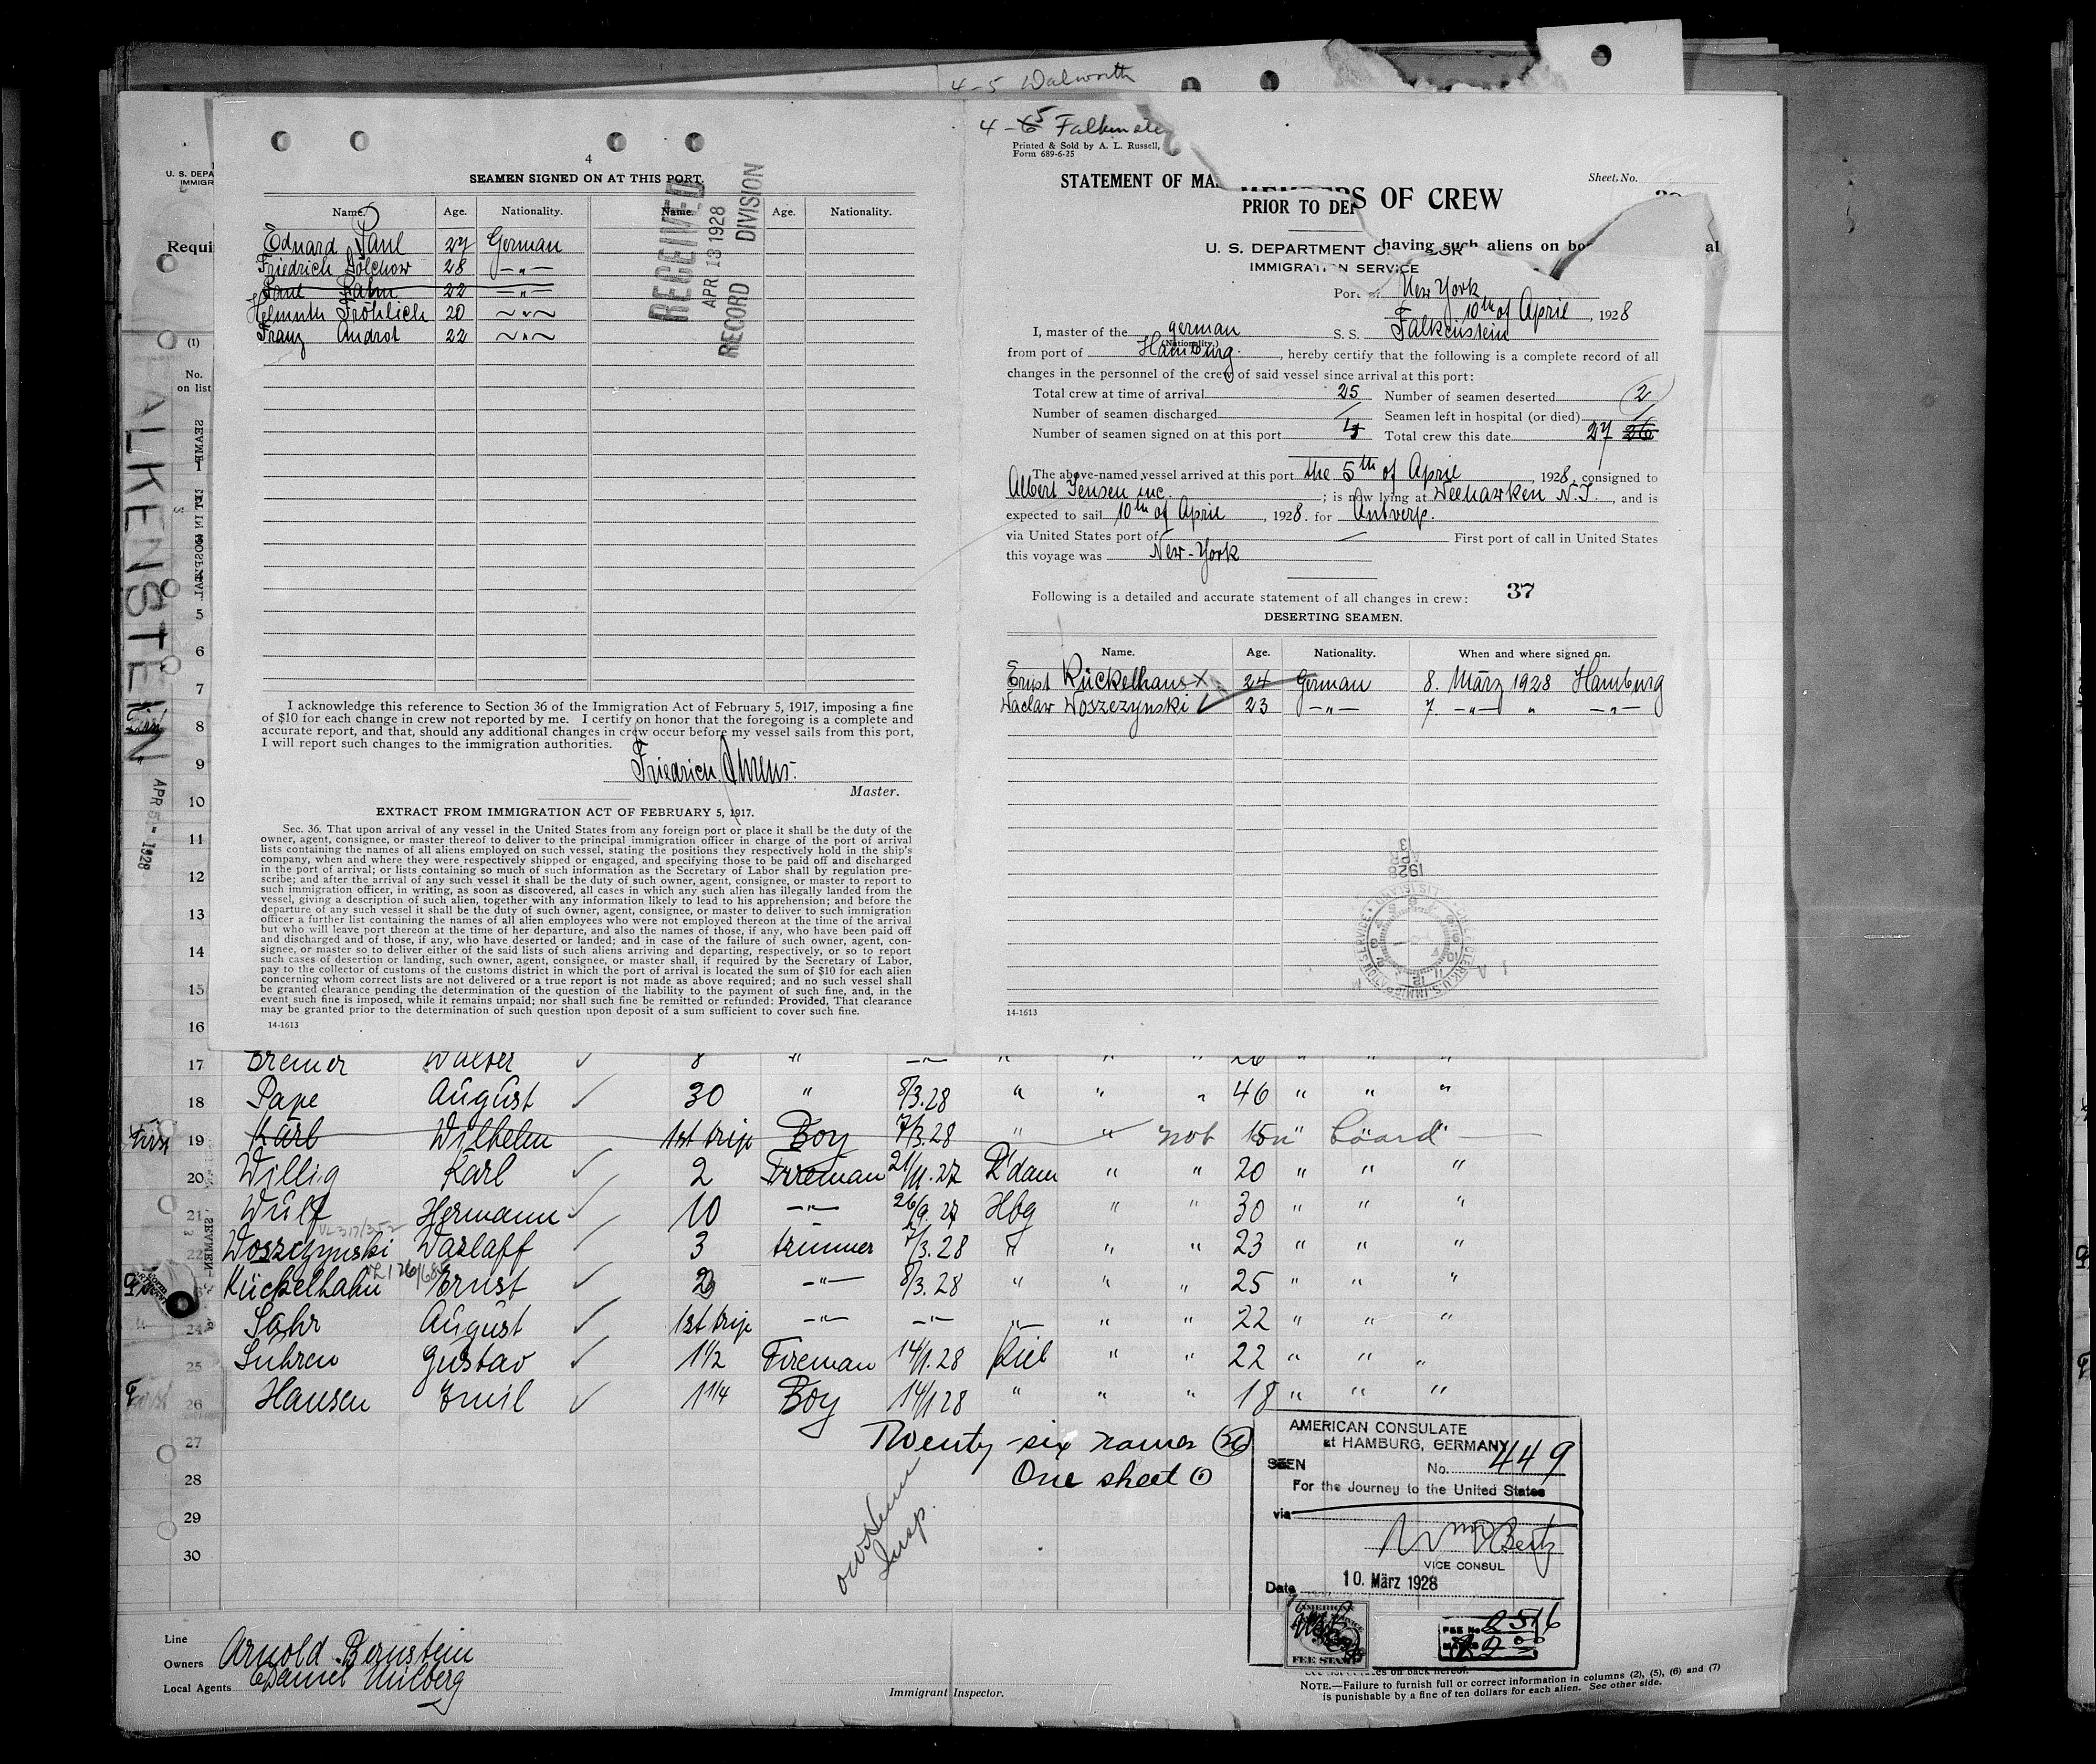 4-5 Walworth
4
SEAMEN SIGNED ON AT THIS PORT.
Name. Age. Nationality. Name. Age. Nationality.
Eduard Paul 27 German
Friedrich Dölchow 28 -"-
Paul Rahn 22 -"-
Helmuth Fröhlich 20 ~"~
Franz Androt 22 ~"~
RECEIVED
APR 13 1928
RECORD DIVISION
I acknowledge this reference to Section 36 of the Immigration Act of February 5, 1917, imposing a fine
of $10 for each change in crew not reported by me. I certify on honor that the foregoing is a complete and
accurate report, and that, should any additional changes in crew occur before my vessel sails from this port,
I will report such changes to the immigration authorities.
Friedrich Ahrens.
Master.
EXTRACT FROM IMMIGRATION ACT OF FEBRUARY 5, 1917.
Sec. 36. That upon arrival of any vessel in the United States from any foreign port or place it shall be the duty of the
owner, agent, consignee, or master thereof to deliver to the principal immigration officer in charge of the port of arrival
lists containing the names of all aliens employed on such vessel, stating the positions they respectively hold in the ship's
company, when and where they were respectively shipped or engaged, and specifying those to be paid off and discharged
in the port of arrival; or lists containing so much of such information as the Secretary of Labor shall by regulation pre-
scribe; and after the arrival of any such vessel it shall be the duty of such owner, agent, consignee, or master to report to
such immigration officer, in writing, as soon as discovered, all cases in which any such alien has illegally landed from the
vessel, giving a description of such alien, together with any information likely to lead to his apprehension; and before the
departure of any such vessel it shall be the duty of such owner, agent, consignee, or master to deliver to such immigration
officer a further list containing the names of all alien employees who were not employed thereon at the time of the arrival
but who will leave port thereon at the time of her departure, and also the names of those, if any, who have been paid off
and discharged and of those, if any, who have deserted or landed; and in case of the failure of such owner, agent, con-
signee, or master so to deliver either of the said lists of such aliens arriving and departing, respectively, or so to report
such cases of desertion or landing, such owner, agent, consignee, or master shall, if required by the Secretary of Labor,
pay to the collector of customs of the customs district in which the port of arrival is located the sum of $10 for each alien
concerning whom correct lists are not delivered or a true report is not made as above required; and no such vessel shall
be granted clearance pending the determination of the question of the liability to the payment of such fine, and, in the
event such fine is imposed, while it remains unpaid; nor shall such fine be remitted or refunded: Provided, That clearance
may be granted prior to the determination of such question upon deposit of a sum sufficient to cover such fine.
14-1613
4-5 Falkenstein
Printed & Sold by A. L. Russell,
Form 689-6-25
Sheet No.
STATEMENT OF MA
MEMBERS OF CREW
PRIOR TO DEP
having such aliens on bo
U. S. DEPARTMENT OF LABOR
IMMIGRATION SERVICE
Port of New York
10th of April, 1928
I, master of the german S. S. Falkenstein
(Nationality.)
from port of Hamburg., hereby certify that the following is a complete record of all
changes in the personnel of the crew of said vessel since arrival at this port:
Total crew at time of arrival 25 Number of seamen deserted 2
Number of seamen discharged / Seamen left in hospital (or died) /
Number of seamen signed on at this port 4 Total crew this date 27 26
The above-named vessel arrived at this port the 5th of April, 1928, consigned to
Albert Jensen inc.; is now lying at Weehawken N.J., and is
expected to sail 10th of April, 1928. for Antwerp.
via United States port of — First port of call in United States
this voyage was New-York
Following is a detailed and accurate statement of all changes in crew: 37
DESERTING SEAMEN.
Name. Age. Nationality. When and where signed on.
Ernst Kückelhaus X 24 German 8. März 1928 Hamburg
Waclaw Woszezynski ✓ 23 -"- 7. -"- " -"-
APR 13 1928
14-1613
U. S. DEPA
IMMIGR
Requi
FALKENSTEIN
APR 5-1928
(1)
No.
on list
5
6
7
8
9
10
11
12
13
14
15
16
17 Bremer Walter ✓ 8 " -"- " " 26 " " "
18 Pape August ✓ 30 " 8/3.28 " " " 46 " " "
First 19 Karl Wilhelm 1st trip Boy 7/3.28 " " not 15 on " board "
20 Willig Karl ✓ 2 Fireman 21/11.27 R'dam " " 20 " " "
21 Wulf Hermann ✓ 10 -"- 26/9.27 Hbg " " 30 " " "
22 Woszczynski Wazlaff ✓ 3 trimmer 7/3.28 " " " 23 " " "
Kückelhahn Ernst ✓ 2 -"- 8/3.28 " " " 25 " " "
24 Sahr August ✓ 1st trip -"- -"- " " " 22 " " "
25 Sühren Gustav ✓ 1½ Fireman 14/1.28 Kiel " " 22 " " "
26 Hansen Emil ✓ 1 1/4 Boy 14/1 28 " " " 18 " " "
27
28
29
30
Twenty-six names (26)
One sheet (1)
Insp.
AMERICAN CONSULATE
at HAMBURG, GERMANY
SEEN No. 449
For the Journey to the United States
via
VICE CONSUL
Date 10. März 1928
AMERICAN
FEE STAMP
FEE No 2516
Line
Owners Arnold Bernstein
Local Agents Daniel Milberg
Immigrant Inspector.
es on back hereof.
NOTE.—Failure to furnish full or correct information in columns (2), (5), (6) and (7)
is punishable by a fine of ten dollars for each alien. See other side.